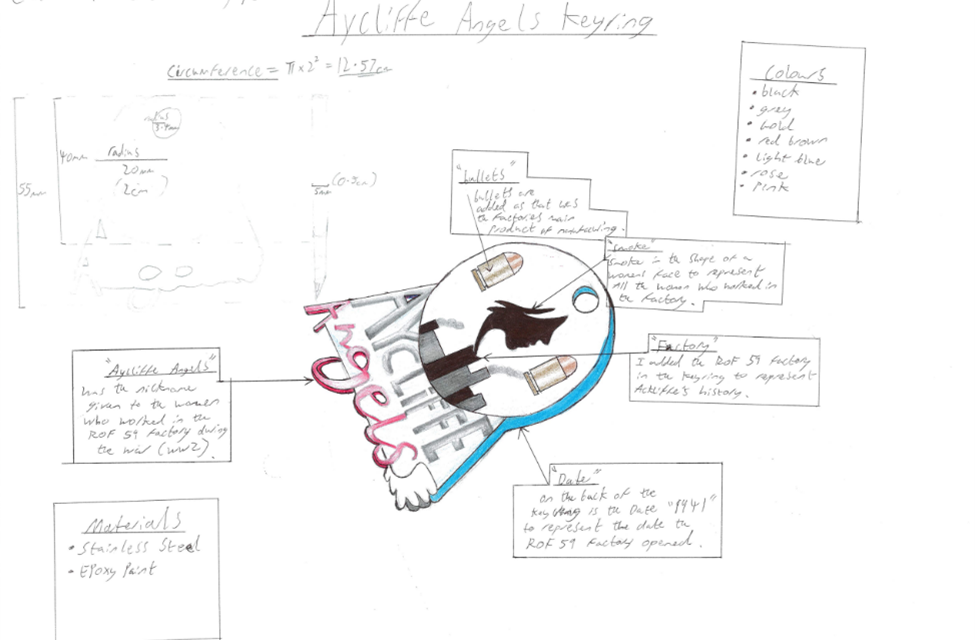 Aycliffe Angels Keyring
Circumference = π x 2² = 12.57cm
Colours
• black
• grey
• gold
• red brown
• light blue
• rose
• Pink
40mm
radius
20mm
(2cm)
55mm
5mm (0.5cm)
"bullets"
bullets are
added as that was
the factories main
product of manufacturing.
"smoke"
smoke in the shape of a
womens face to represent
all the women who worked in
the factory.
"Factory"
I added the ROF 59 factory
in the keyring to represent
Aycliffe's history.
AYCLIFFE
Angels
"Aycliffe Angels"
was the nickname
given to the women
who worked in the
ROF 59 factory during
the war (WW2).
"Date"
on the back of the
keyring is the Date "1941"
to represent the date the
ROF 59 Factory opened.
Materials
• Stainless Steel
• Epoxy Paint